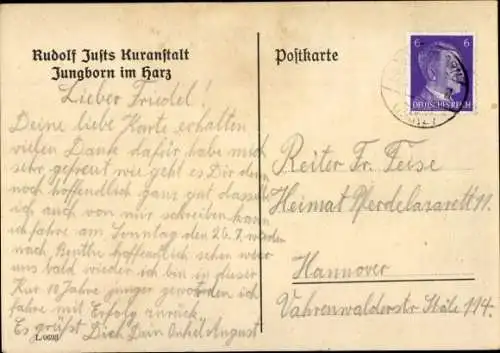 Rudolf Justs Kuranstalt
Jungborn im Harz
Postkarte
6 6
DEUTSCHES REICH
Lieber Friedel!
Deine liebe Karte erhalten
vielen Dank dafür habe mich
sehr gefreut wie geht es Dir denn
noch hoffendlich ganz gut dasselbe
ich auch von mir schreiben kann
ich fahre am Sonntag den 26.7. wieder
nach hoffendlich sehen wir
uns bald wieder ich bin in dieser
Kur 10 Jahre jünger geworden ich
fahre mit Erfolg zurück.
Es grüßt Dich Dein Onkel August
L/0698
Reiter Fr. Feise
Heimat Pferdelazarett 11.
Hannover
Vahrenwalderstr. 114.